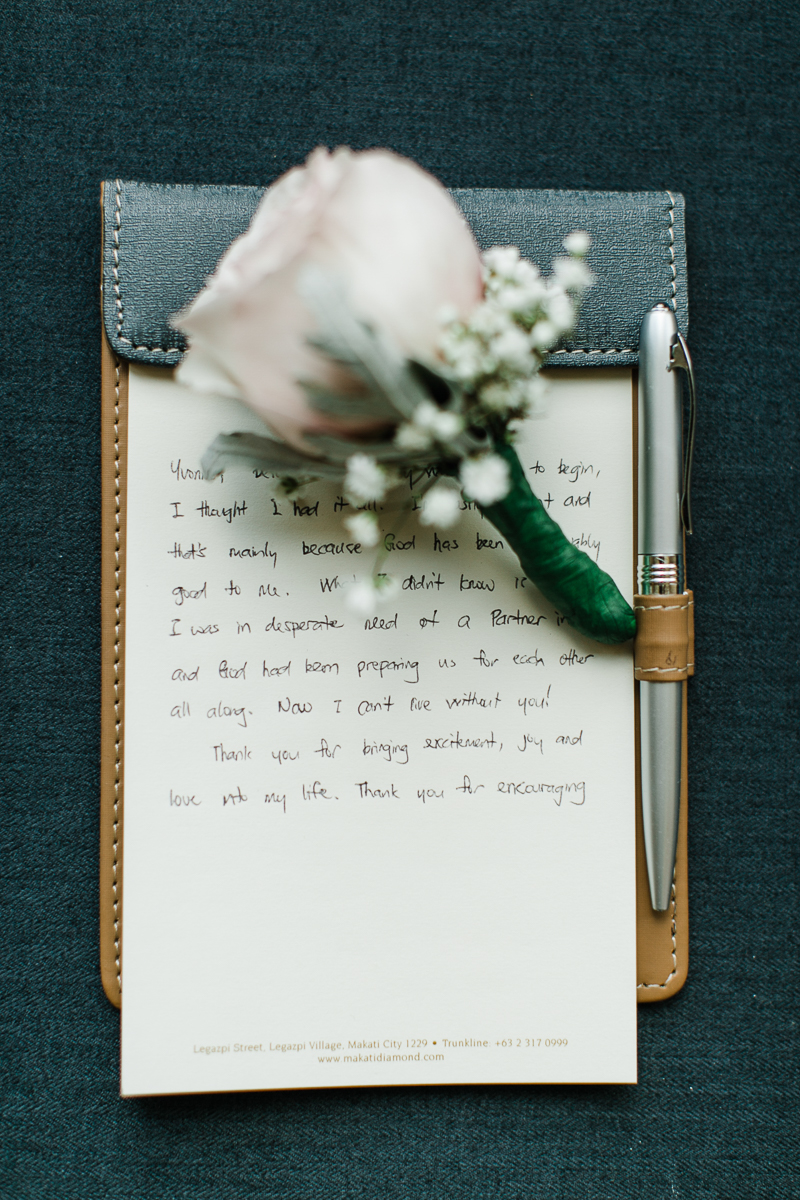 to begin,
I thought I had it all. and
that's mainly because God has been
good to me. didn't know is
I was in desperate need of a Partner in
and God had been preparing us for each other
all along. Now I can't live without you!
Thank you for bringing excitement, joy and
love into my life. Thank you for encouraging
Legazpi Street, Legazpi Village, Makati City 1229 • Trunkline: +63 2 317 0999
www.makatidiamond.com